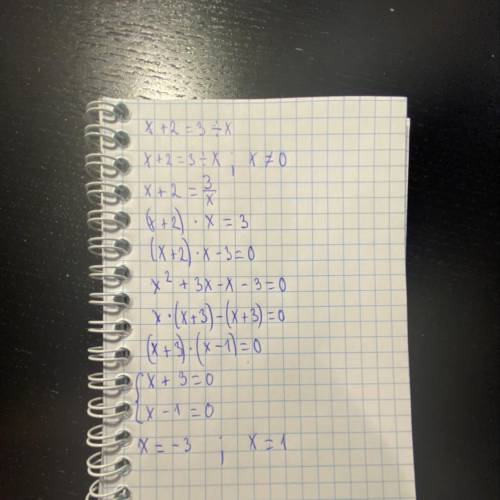 x + 2 = 3 ÷ x
x + 2 = 3 ÷ x ; x ≠ 0
x + 2 = 3/x
(x + 2) · x = 3
(x + 2) · x - 3 = 0
x² + 3x - x - 3 = 0
x · (x + 3) - (x + 3) = 0
(x + 3) · (x - 1) = 0
{ x + 3 = 0
x - 1 = 0
x = -3 ; x = 1